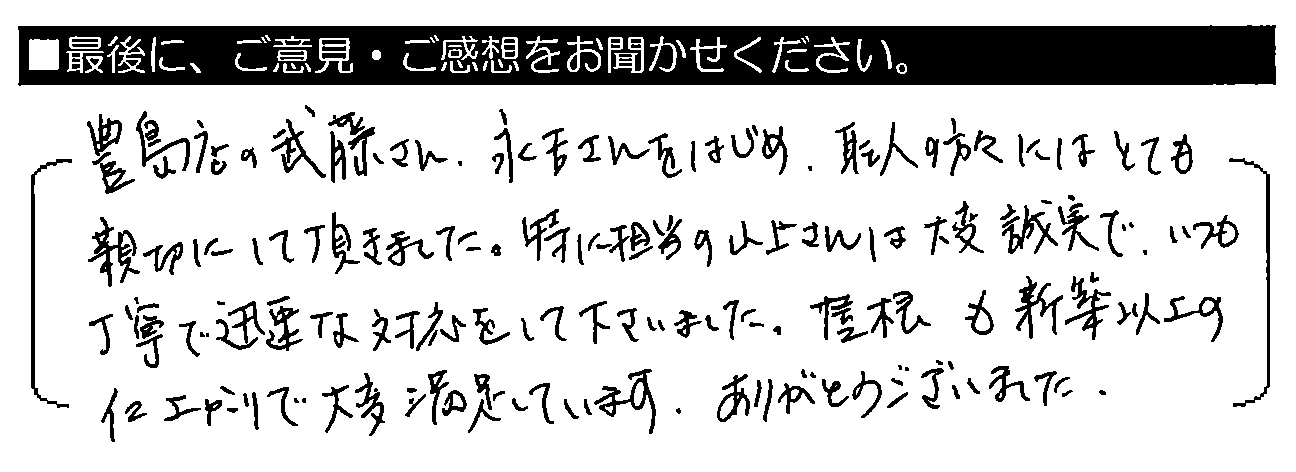 ■最後に、ご意見・ご感想をお聞かせください。
豊島店の武藤さん、永吉さんをはじめ、職人の方々にはとても
親切にして頂きました。特に担当の山上さんは大変誠実で、いつも
丁寧で迅速な対応をして下さいました。屋根も新築以上の
仕上がりで大変満足しています。ありがとうございました。